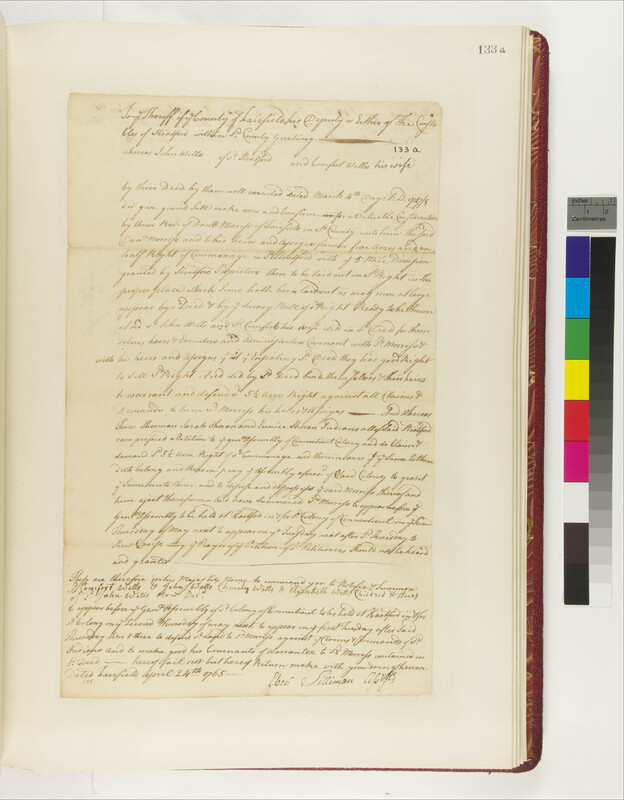 133 a
To ye Sheriff of ye County of Fairfield his Deputy or Either of the Consta
bles of Stratford within sd County Greeting
133 a
whereas John Wells of sd Stratford and Comfort Wells his wife
by there Deed by them well executed dated March 4th
did give grant sell make over and confirm for a Valuable Consideration
by them Recd of Danll Morriss of Fairfield in sd County
Morriss and to his heirs and assigns forever five Acres and an
half Right of Commonage in sd Stratford with ye 5 Mile Division
granted by Stratford Proprietors then to be laid out on sd Right in the
proper place which Since hath been laid out as may more at large
appear by sd Deed & by ye Survey Bill of sd Right Ready to be Shewn
And sd John Wells and sd Comfort his wife did in sd Deed for them
selves heirs & Executors and Administrators Covenant with sd Morriss &
with his heirs and assigns yt at ye Ensealing sd Deed they had good Right
to Sell sd Right And did by sd Deed bind themselves & their heirs
to warrant and defend sd 5½ Acre Right against all Claims &
Demands to him sd Morriss his heirs & assigns And whereas
Tom Sherman Sarah Shoran and Eunice Shoran Indians all of said Stratford
have prefered a Petition to ye Genll Assembly of Connecticut Colony and do Claim &
demand sd 5½ Acre Right of sd Commonage and therein aver yt ye Same to them
doth belong and therein pray ye Assembly aforesd of Said Colony to grant
ye Same unto them and to ye said Morriss thereof and
him eject therefrom and have Summoned sd Morriss to appear before ye
Genll Assembly to be held at Hartford in & for sd Colony of Connecticut on ye Second
Thursday of May next to appear on ye Tuesday next after sd Thursday to
Shew Cause why ye Prayer of ye Petition of sd Petitioners Should not be heard
and granted
These are therefore in his Majesties Name to command you to Notifie & Summon
sd Comfort Wells & John Wells & Elizabeth Wells Children & Heirs
of sd John Wells
to appear before ye Genll Assembly of sd Colony of Connecticut to be held at Hartford in & for
sd Colony on ye Second Thursday of May next to appear on ye first Tuesday after said
Thursday then & there to defend sd Right to sd Morriss against ye Claims & Demands of sd
Indians and to make good his Covenants of Warrantee to sd Morriss contained in
sd Deed hereof fail not but hereof Return make with your doings thereon
Dated Fairfield April 24th 1765
Ebenr Silliman Assistt
inches
1
2
Centimetres